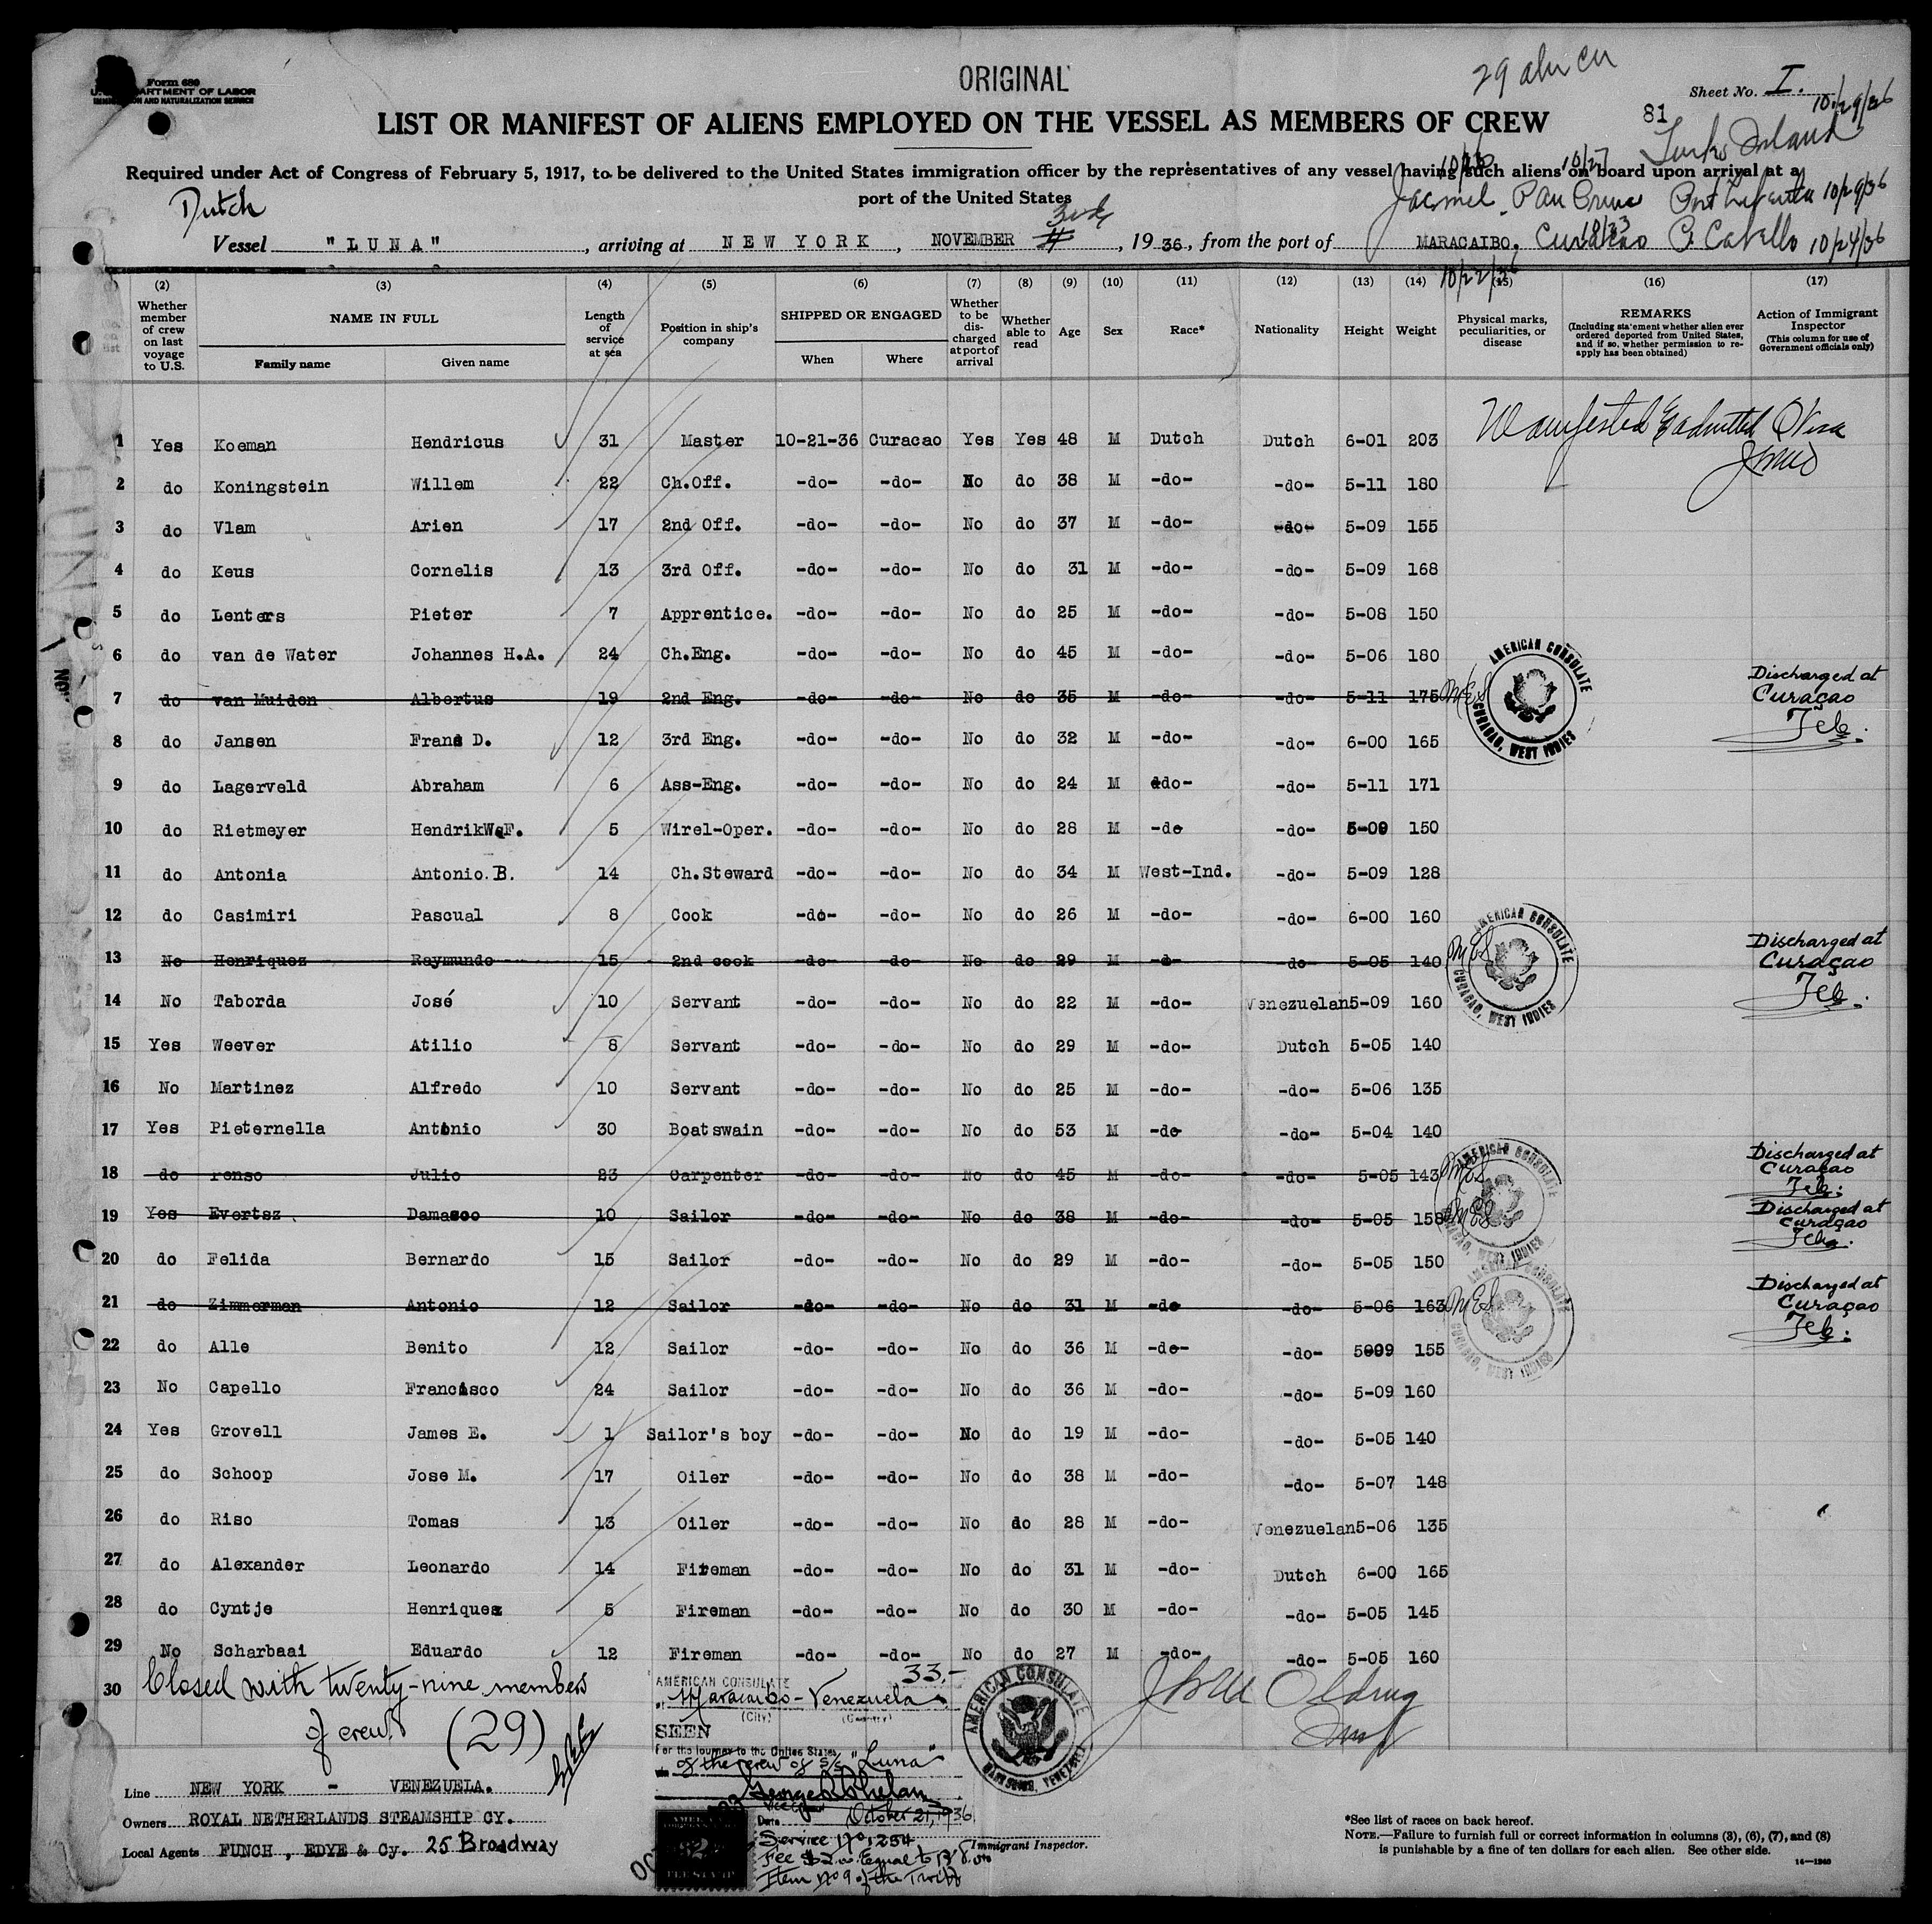 Form 680
U. S. DEPARTMENT OF LABOR
IMMIGRATION AND NATURALIZATION SERVICE
ORIGINAL
29 alien
Sheet No. I.
81
10/29/36
LIST OR MANIFEST OF ALIENS EMPLOYED ON THE VESSEL AS MEMBERS OF CREW
Turks Island
Required under Act of Congress of February 5, 1917, to be delivered to the United States immigration officer by the representatives of any vessel having such aliens on board upon arrival at a
port of the United States
10/26 10/27
Dutch
Jacmel Pau Prince 10/29/36
3rd
Vessel "LUNA", arriving at NEW YORK, NOVEMBER, 1936, from the port of MARACAIBO. Curacao P. Cabello 10/24/36
10/23
10/22/36
(2) (3) (4) (5) (6) (7) (8) (9) (10) (11) (12) (13) (14) (15) (16) (17)
Whether member of crew on last voyage to U.S.
NAME IN FULL
Family name Given name
Length of service at sea
Position in ship's company
SHIPPED OR ENGAGED
When Where
Whether to be discharged at port of arrival
Whether able to read
Age Sex Race* Nationality Height Weight
Physical marks, peculiarities, or disease
REMARKS
(Including statement whether alien ever ordered deported from United States, and if so, whether permission to reapply has been obtained)
Action of Immigrant Inspector
(This column for use of Government officials only)
1 Yes Koeman Hendricus 31 Master 10-21-36 Curacao Yes Yes 48 M Dutch Dutch 6-01 203 Manifested & admitted
2 do Koningstein Willem 22 Ch.Off. -do- -do- No do 38 M -do- -do- 5-11 180
3 do Vlam Arien 17 2nd Off. -do- -do- No do 37 M -do- -do- 5-09 155
4 do Keus Cornelis 13 3rd Off. -do- -do- No do 31 M -do- -do- 5-09 168
5 do Lenters Pieter 7 Apprentice. -do- -do- No do 25 M -do- -do- 5-08 150
6 do van de Water Johannes H.A. 24 Ch.Eng. -do- -do- No do 45 M -do- -do- 5-06 180
7 do van Muiden Albertus 19 2nd Eng. -do- -do- No do 35 M -do- -do- 5-11 175 MES Discharged at Curaçao
AMERICAN CONSULATE CURACAO, WEST INDIES
8 do Jansen Frans D. 12 3rd Eng. -do- -do- No do 32 M -do- -do- 6-00 165
9 do Lagerveld Abraham 6 Ass-Eng. -do- -do- No do 24 M ddo- -do- 5-11 171
10 do Rietmeyer HendrikW.F. 5 Wirel-Oper. -do- -do- No do 28 M -do -do- 5-09 150
11 do Antonia Antonio.B. 14 Ch.Steward -do- -do- No do 34 M West-Ind. -do- 5-09 128
12 do Casimiri Pascual 8 Cook -do- -do- No do 26 M -do- -do- 6-00 160
13 No Henriquez Raymundo 15 2nd cook -do- -do- No do 29 M -d- -do- 5-05 140 MES Discharged at Curaçao
AMERICAN CONSULATE CURACAO, WEST INDIES
14 No Taborda José 10 Servant -do- -do- No do 22 M -do- Venezuelan 5-09 160
15 Yes Weever Atilio 8 Servant -do- -do- No do 29 M -do- Dutch 5-05 140
16 No Martinez Alfredo 10 Servant -do- -do- No do 25 M -do- -do- 5-06 135
17 Yes Pieternella Antonio 30 Boatswain -do- -do- No do 53 M -do -do- 5-04 140
18 do Penso Julio 23 Carpenter -do- -do- No do 45 M -do- -do- 5-05 143 MES Discharged at Curaçao
AMERICAN CONSULATE CURACAO, WEST INDIES
19 Yes Evertsz Damasco 10 Sailor -do- -do- No do 38 M -do- -do- 5-05 158 MES Discharged at Curaçao
20 do Felida Bernardo 15 Sailor -do- -do- No do 29 M -do- -do- 5-05 150
21 do Zimmerman Antonio 12 Sailor -do- -do- No do 31 M -do -do- 5-06 163 MES Discharged at Curaçao
AMERICAN CONSULATE CURACAO, WEST INDIES
22 do Alle Benito 12 Sailor -do- -do- No do 36 M -do- -do- 5009 155
23 No Capello Francisco 24 Sailor -do- -do- No do 36 M -do- -do- 5-09 160
24 Yes Grovell James E. 1 Sailor's boy -do- -do- No do 19 M -do- -do- 5-05 140
25 do Schoop Jose M. 17 Oiler -do- -do- No do 38 M -do- -do- 5-07 148
26 do Riso Tomas 13 Oiler -do- -do- No do 28 M -do- Venezuelan 5-06 135
27 do Alexander Leonardo 14 Fireman -do- -do- No do 31 M -do- Dutch 6-00 165
28 do Cyntje Henriquez 5 Fireman -do- -do- No do 30 M -do- -do- 5-05 145
29 No Scharbaai Eduardo 12 Fireman -do- -do- No do 27 M -do- -do- 5-05 160
30 Closed with twenty-nine members
of crew. (29)
33.-
AMERICAN CONSULATE
at Maracaibo - Venezuela
(City) (Country)
SEEN
For the journey to the United States
of the crew of S/S "Luna"
George Phelan
Vice Consul
Date October 21, 1936.
Service No. 254
Fee $2.00 Equal to
Item No 9 of the Tariff
AMERICAN CONSULATE MARACAIBO, VENEZUELA
Immigrant Inspector.
Line NEW YORK - VENEZUELA.
Owners ROYAL NETHERLANDS STEAMSHIP CY.
Local Agents FUNCH, EDYE & Cy. 25 Broadway
*See list of races on back hereof.
NOTE.—Failure to furnish full or correct information in columns (3), (6), (7), and (8)
is punishable by a fine of ten dollars for each alien. See other side.
14—1240